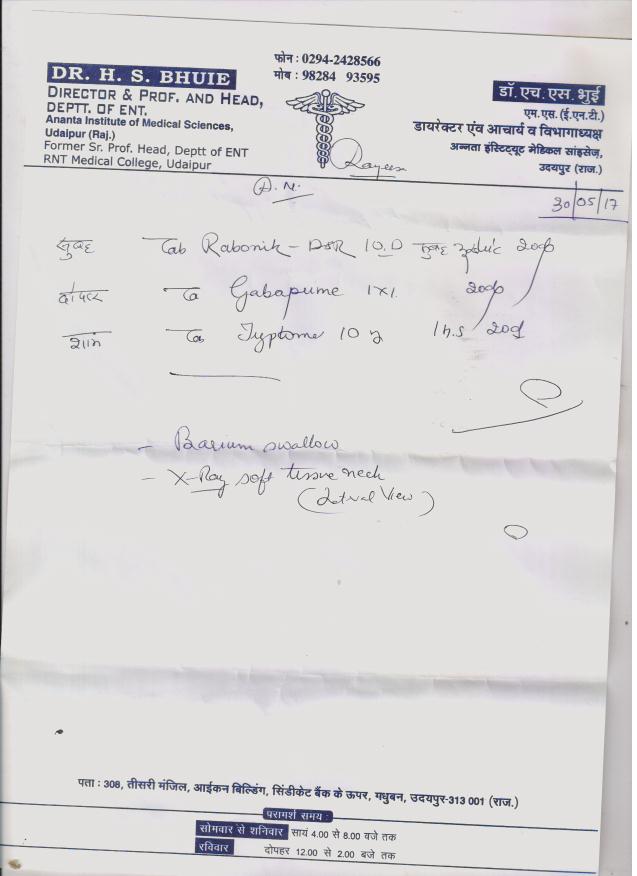 फोन : 0294-2428566
मोब : 98284 93595
DR. H. S. BHUIE
DIRECTOR & PROF. AND HEAD,
DEPTT. OF ENT.
Ananta Institute of Medical Sciences,
Udaipur (Raj.)
Former Sr. Prof. Head, Deptt of ENT
RNT Medical College, Udaipur
डॉ.एच.एस.भुई
एम.एस.(ई.एन.टी.)
डायरेक्टर एंव आचार्य व विभागाध्यक्ष
अनन्ता इंस्टिट्यूट मेडिकल सांइसेज,
उदयपुर (राज.)
30/05/17
सुबह Tab Rabonik-DSR 1O.D सुबह
दोपहर Gabapume 1x1
शाम 10 1 h.s
- Barium swallow
- X-Ray soft tissue neck
(Latral View)
पता : 308, तीसरी मंजिल, आईकन बिल्डिंग, सिंडीकेट बैंक के ऊपर, मधुबन, उदयपुर-313 001 (राज.)
परामर्श समय :
सोमवार से शनिवार सायं 4.00 से 8.00 बजे तक
रविवार दोपहर 12.00 से 2.00 बजे तक